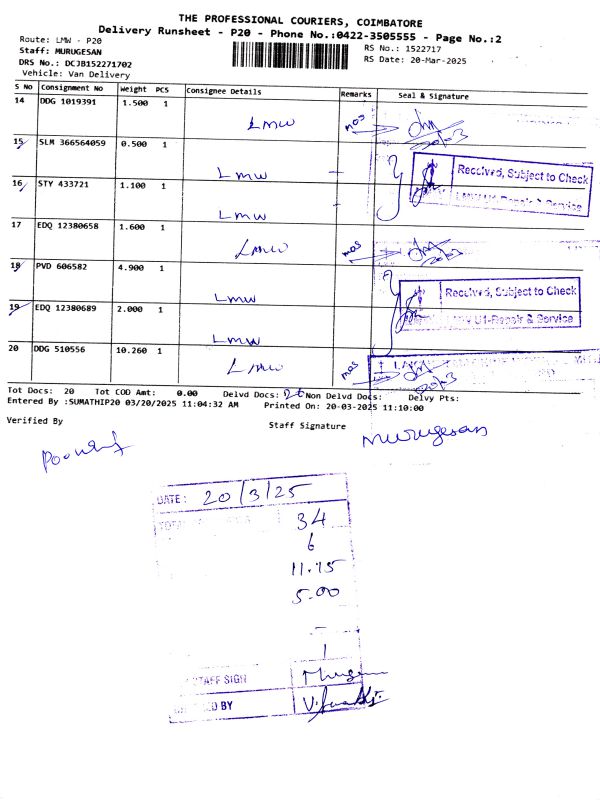 THE PROFESSIONAL COURIERS, COIMBATORE
Delivery Runsheet - P20 - Phone No.:0422-3505555 - Page No.:2
Route: LMW - P20
RS No.: 1522717
Staff: MURUGESAN
RS Date: 20-Mar-2025
DRS No.: DCJB152271702
Vehicle: Van Delivery
S No Consignment No Weight PCS Consignee Details Remarks Seal & Signature
14 DDG 1019391 1.500 1 LMW
15 SLM 366564059 0.500 1 LMW
Received, Subject to Check
16 STY 433721 1.100 1 LMW
LMW U1-Repair & Service
17 EDQ 12380658 1.600 1 LMW
18 PVD 606582 4.900 1 LMW
Received, Subject to Check
19 EDQ 12380689 2.000 1 LMW
LMW U1-Repair & Service
20 DDG 510556 10.260 1 LMW
Tot Docs: 20 Tot COD Amt: 0.00 Delvd Docs: 20 Non Delvd Docs: Delvy Pts:
Entered By :SUMATHIP20 03/20/2025 11:04:32 AM Printed On: 20-03-2025 11:10:00
Verified By
Staff Signature
Murugesan
DATE: 20/3/25
34
6
11.15
5.00
1
STAFF SIGN
BY